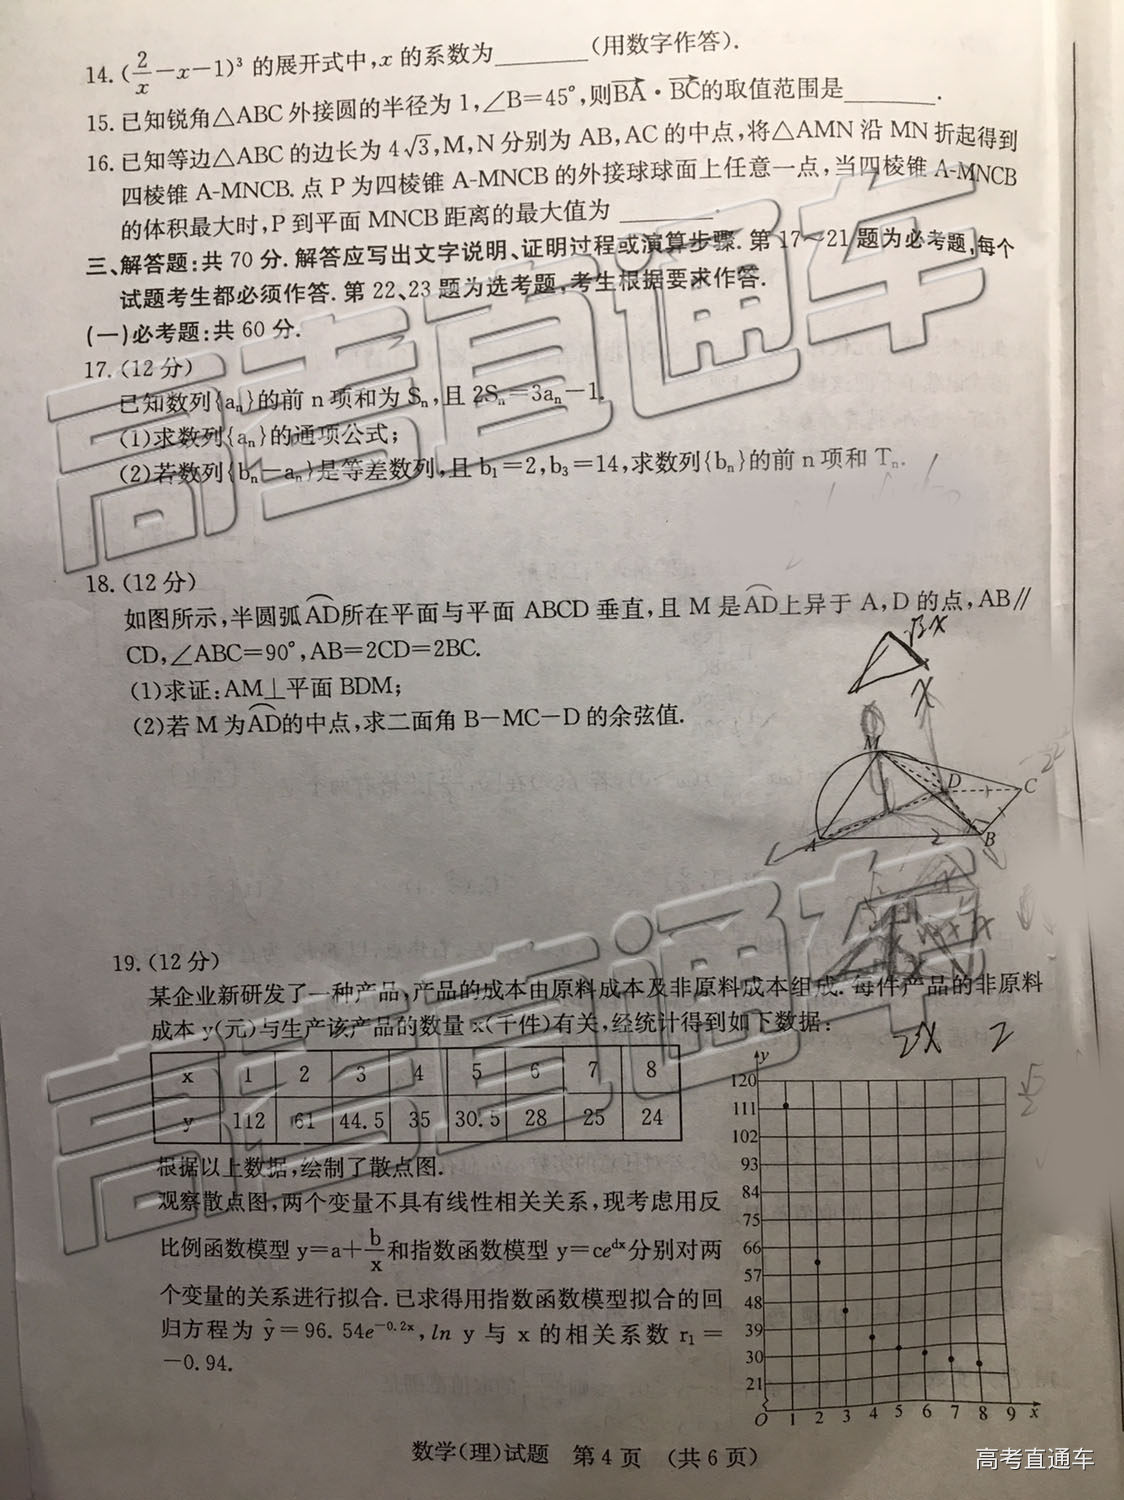 14. (2/x－x－1)³ 的展开式中,x 的系数为______(用数字作答).
15. 已知锐角△ABC 外接圆的半径为 1,∠B=45°,则BA·BC的取值范围是______.
16. 已知等边△ABC 的边长为 4√3,M,N 分别为 AB,AC 的中点,将△AMN 沿 MN 折起得到
四棱锥 A-MNCB. 点 P 为四棱锥 A-MNCB 的外接球球面上任意一点,当四棱锥 A-MNCB
的体积最大时,P 到平面 MNCB 距离的最大值为 ______.
三、解答题:共 70 分. 解答应写出文字说明、证明过程或演算步骤. 第 17～21 题为必考题,每个
试题考生都必须作答. 第 22、23 题为选考题,考生根据要求作答.
(一)必考题:共 60 分.
17. (12 分)
已知数列{aₙ}的前 n 项和为 Sₙ,且 2Sₙ=3aₙ－1.
(1)求数列{aₙ}的通项公式;
(2)若数列{bₙ－aₙ}是等差数列,且 b₁=2,b₃=14,求数列{bₙ}的前 n 项和 Tₙ.
18. (12 分)
如图所示,半圆弧AD所在平面与平面 ABCD 垂直,且 M 是AD上异于 A,D 的点,AB∥
CD,∠ABC=90°,AB=2CD=2BC.
(1)求证:AM⊥平面 BDM;
(2)若 M 为AD的中点,求二面角 B－MC－D 的余弦值.
√3x
x
M
D
C
A
2
B
19. (12 分)
某企业新研发了一种产品,产品的成本由原料成本及非原料成本组成. 每件产品的非原料
成本 y(元)与生产该产品的数量 x(千件)有关,经统计得到如下数据:
2x 2
x 1 2 3 4 5 6 7 8
y 112 61 44.5 35 30.5 28 25 24
根据以上数据,绘制了散点图.
观察散点图,两个变量不具有线性相关关系,现考虑用反
比例函数模型 y=a+b/x和指数函数模型 y=ce^dx分别对两
个变量的关系进行拟合. 已求得用指数函数模型拟合的回
归方程为 ŷ=96.54e^－0.2x,ln y 与 x 的相关系数 r₁=
－0.94.
y
120
111
102
93
84
75
66
57
48
39
30
21
O 1 2 3 4 5 6 7 8 9 x
√5/2
数学(理)试题 第 4 页 (共 6 页)
高考直通车
高考直通车
高考直通车